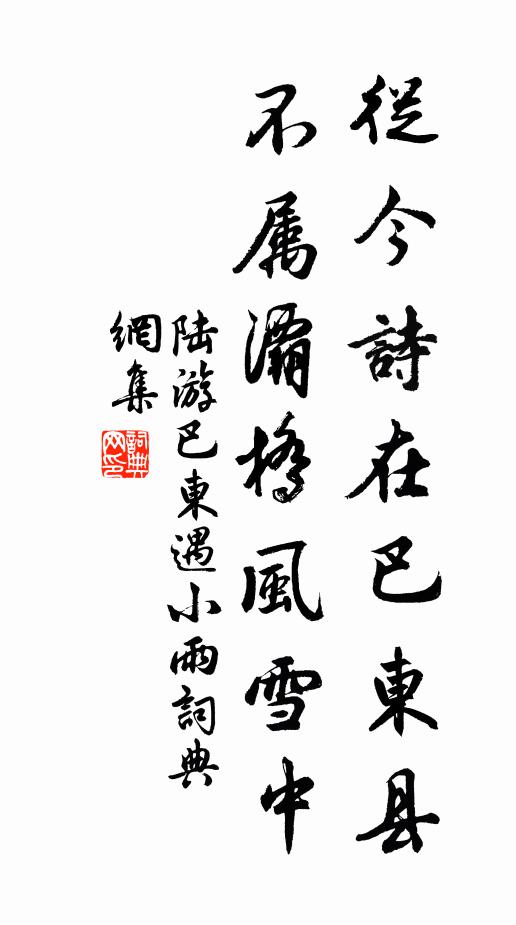 從今詩在巴東县
不属灞橋風雪中
陆游巴東遇小雨詞典
網集
詞典
网印